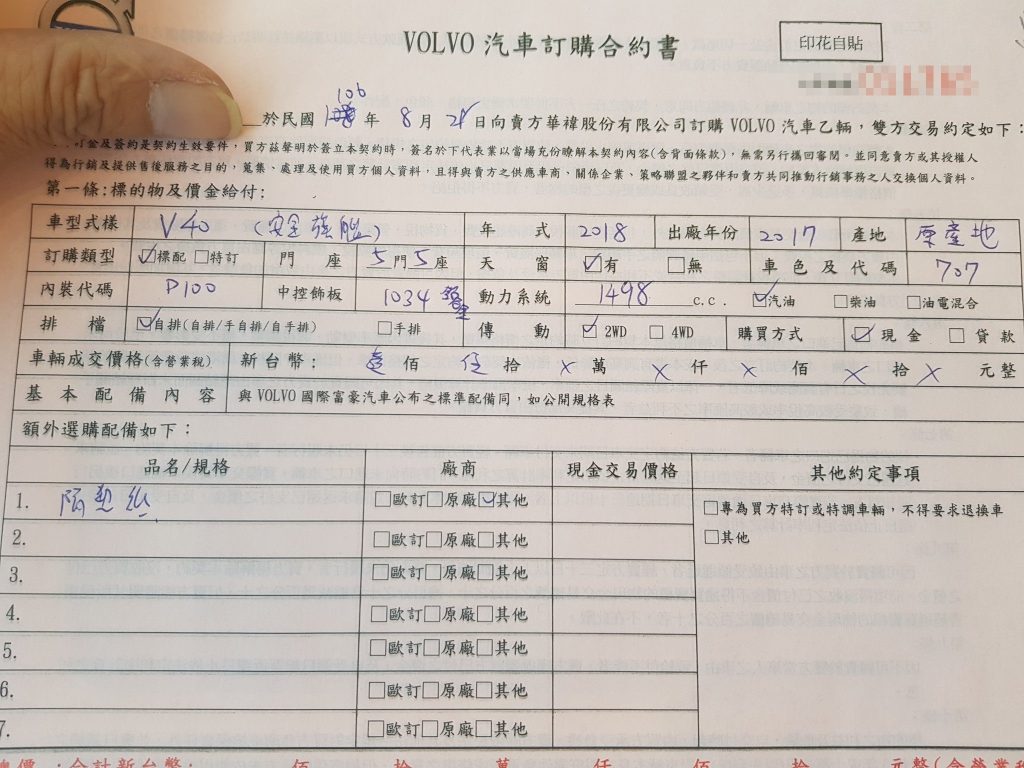 VOLVO 汽車訂購合約書
印花自貼
於民國 106 年 8 月 日向賣方華禕股份有限公司訂購 VOLVO 汽車乙輛，雙方交易約定如下：
訂金及簽約是契約生效要件，買方茲聲明於簽立本契約時，簽名於下代表業以當場充份瞭解本契約內容(含背面條款)，無需另行攜回審閱。並同意賣方或其授權人
得為行銷及提供售後服務之目的，蒐集、處理及使用買方個人資料，且得與賣方之供應車商、關係企業、策略聯盟之夥伴和賣方共同推動行銷事務之人交換個人資料。
第一條:標的物及價金給付:
車型式樣 V40 (安全旗艦) 年式 2018 出廠年份 2017 產地 原產地
訂購類型 ☑標配 □特訂 門座 5門5座 天窗 ☑有 □無 車色及代碼 707
內裝代碼 P100 中控飾板 1034 動力系統 1498 c.c. ☑汽油 □柴油 □油電混合
排檔 ☑自排(自排/手自排/自手排) □手排 傳動 ☑2WD □4WD 購買方式 ☑現金 □貸款
車輛成交價格(含營業稅) 新台幣： 壹佰 伍拾 X萬 X仟 X佰 X拾 X元整
基本配備內容 與 VOLVO 國際富豪汽車公布之標準配備同，如公開規格表
額外選購配備如下：
品名/規格 廠商 現金交易價格 其他約定事項
1. 隔熱紙 □歐訂□原廠☑其他 □專為買方特訂或特調車輛，不得要求退換車
2. □歐訂□原廠□其他 □其他
3. □歐訂□原廠□其他
4. □歐訂□原廠□其他
5. □歐訂□原廠□其他
6. □歐訂□原廠□其他
7. □歐訂□原廠□其他
總價：合計新台幣： 佰 拾 萬 仟 佰 拾 元整(含營業稅